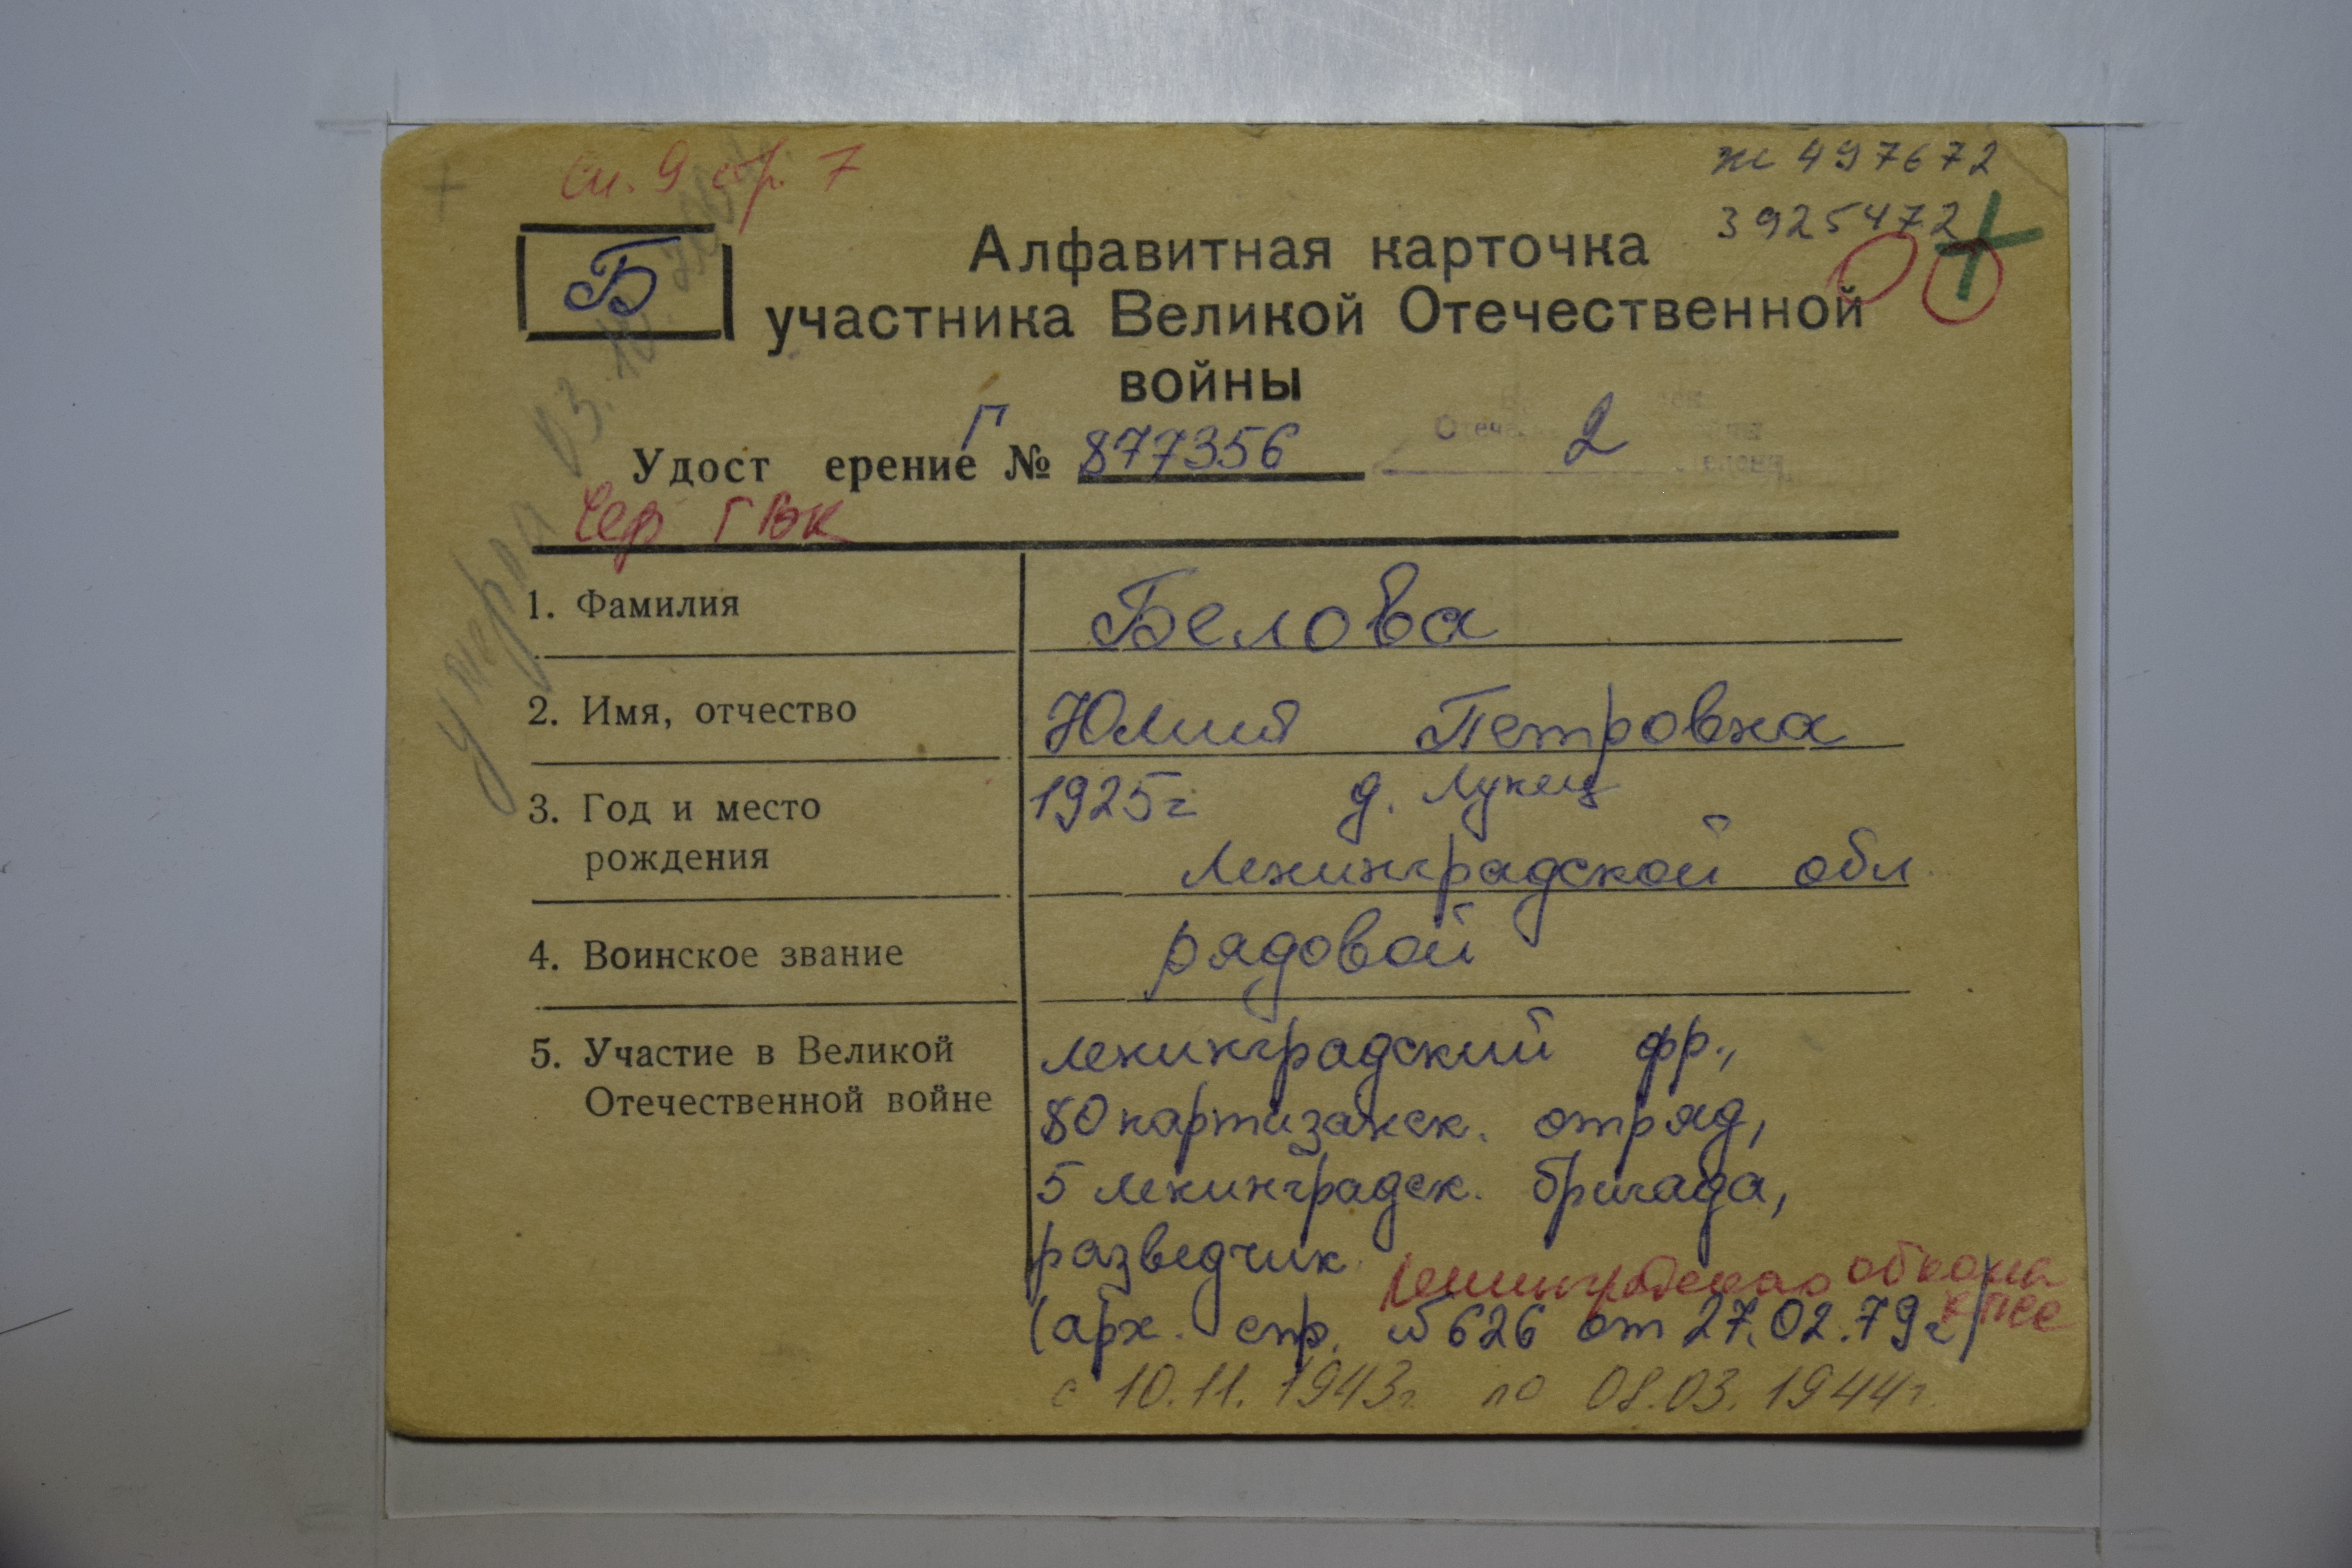 сп. 9 стр. 7
Ж 497672
3925472
Б
Алфавитная карточка
участника Великой Отечественной
войны
Удост ерение Г № 877356 2
Чер ГВК
умерла 03.10.
1. Фамилия Белова
2. Имя, отчество Юлия Петровна
3. Год и место 1925г д. Лукец
рождения Ленинградской обл.
4. Воинское звание рядовой
5. Участие в Великой Ленинградский фр.,
Отечественной войне 80 партизанск. отряд,
5 Ленинградск. бригада,
разведчик.
Ленинградского обкома
КПСС
(арх. спр. №626 от 27.02.79г)
с 10.11.1943г. по 08.03.1944г.